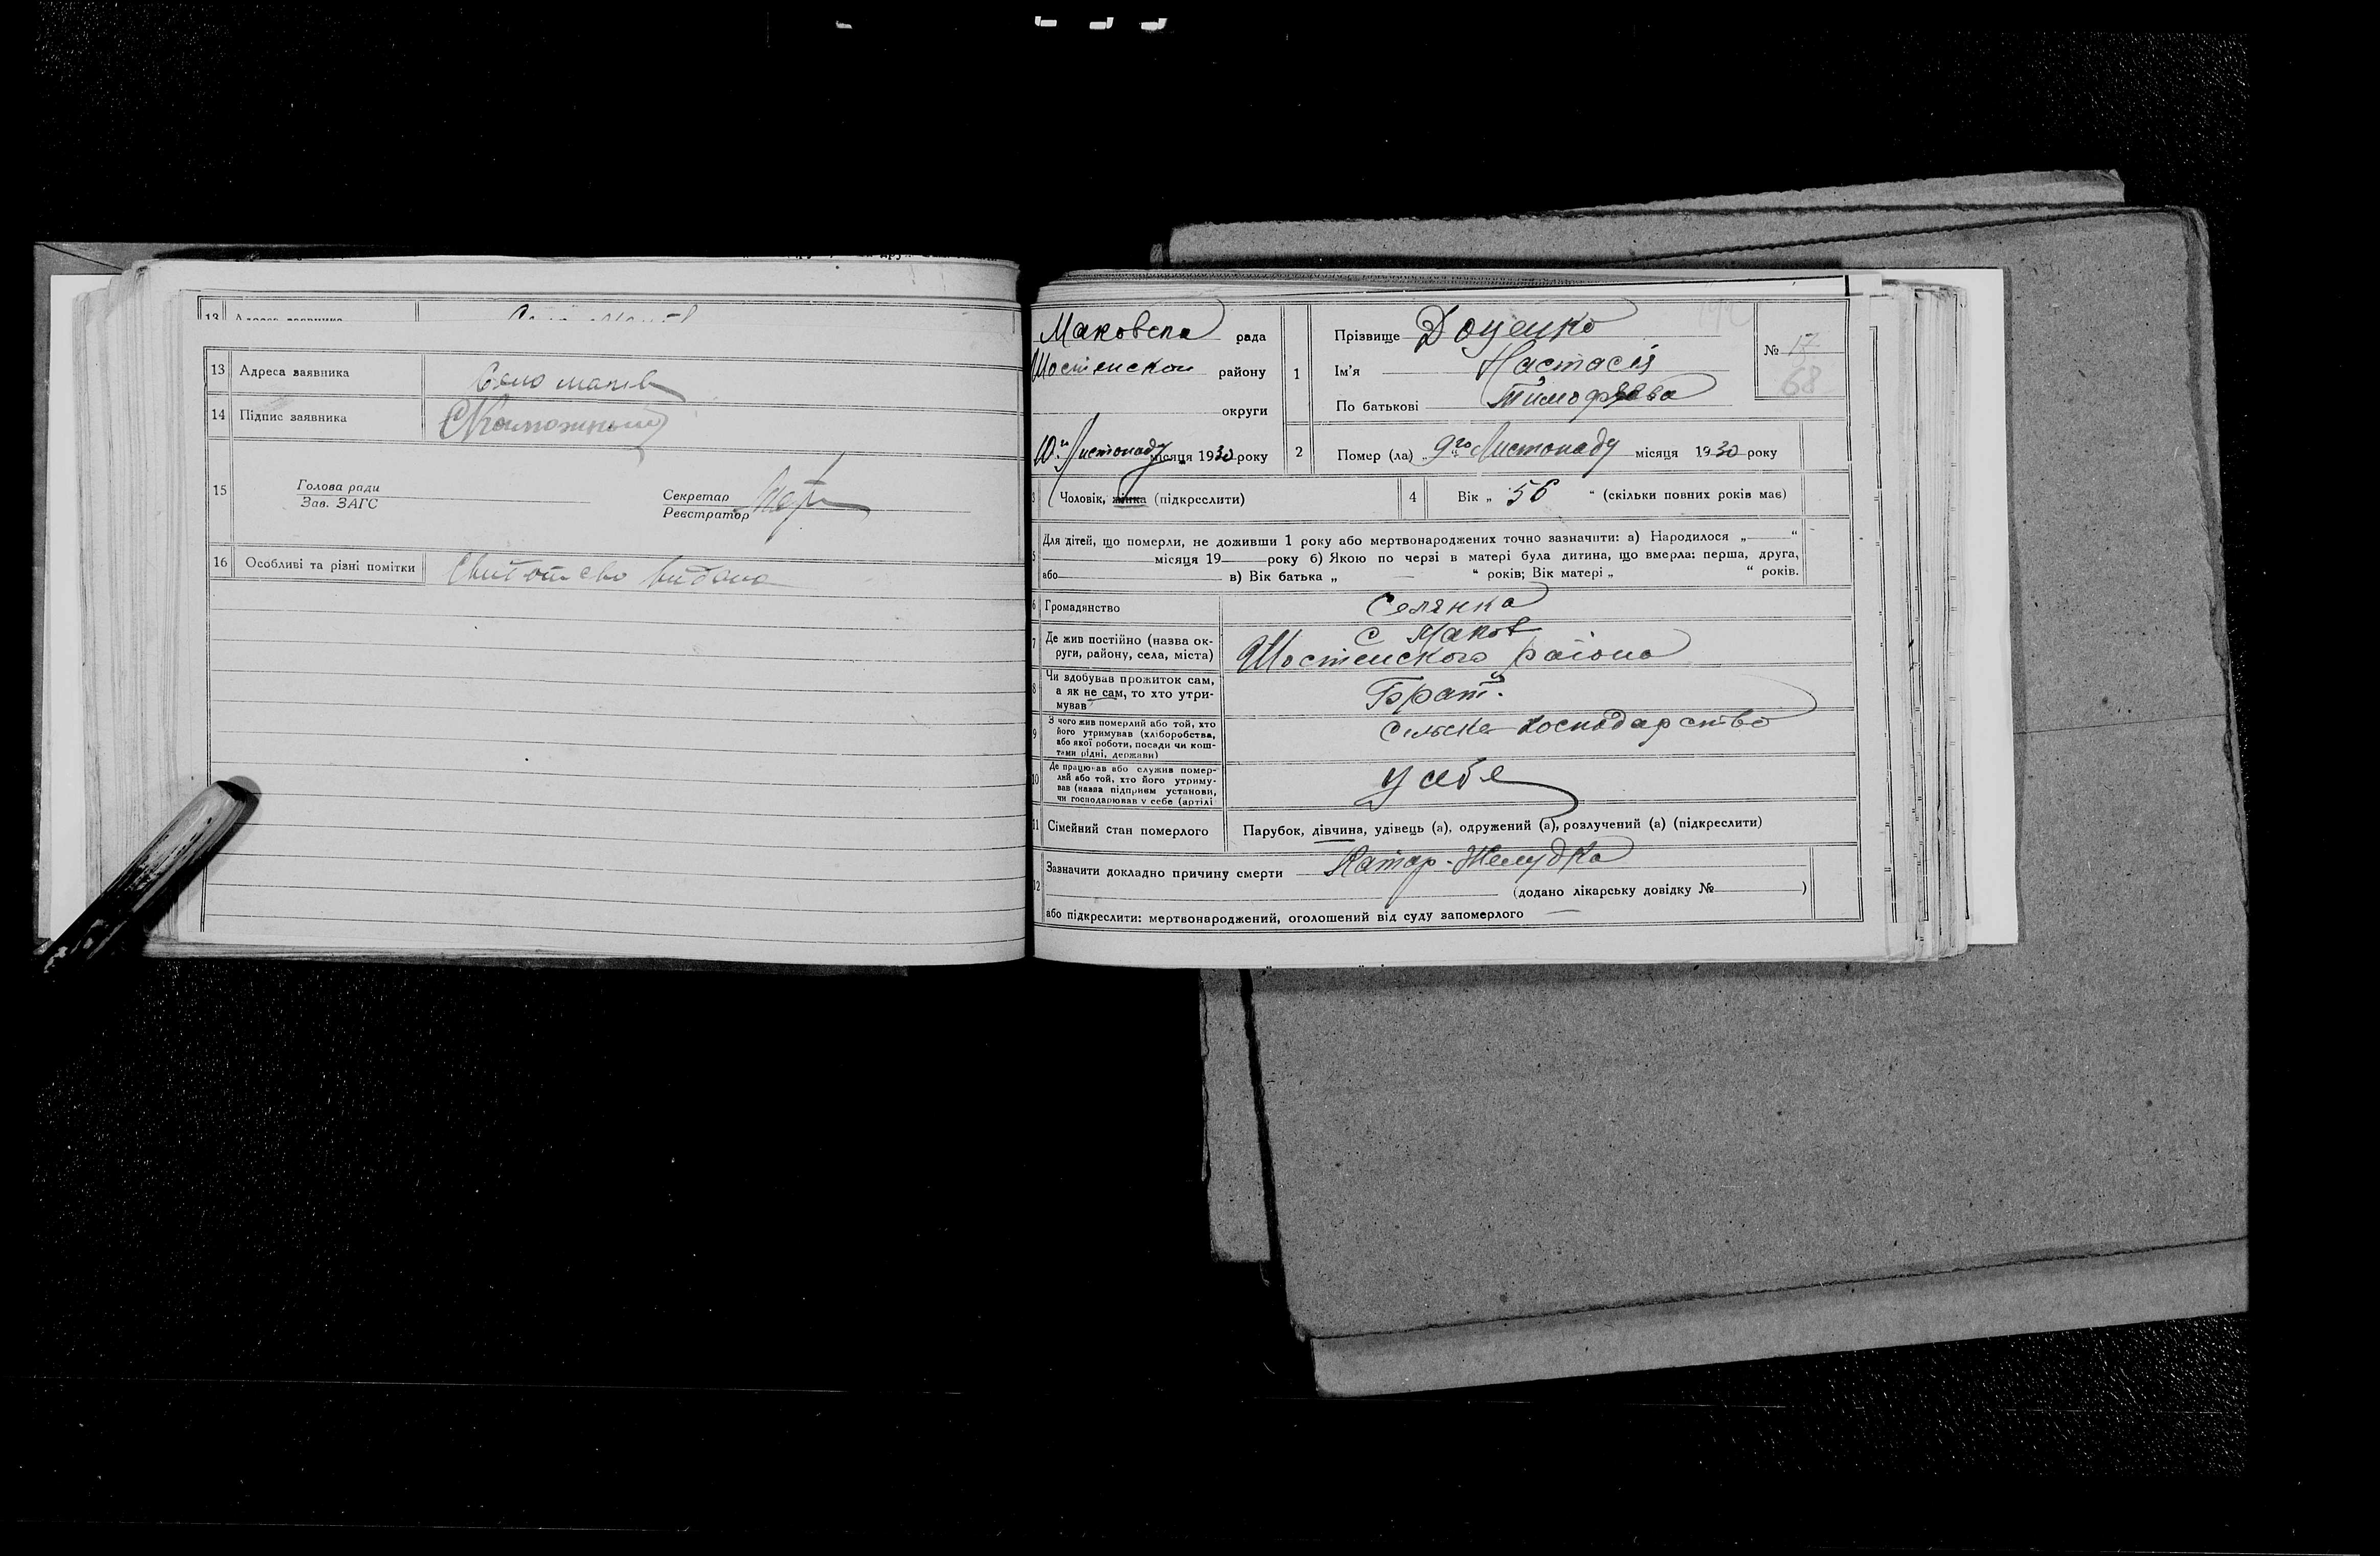 13 Адреса заявника
13 Адреса заявника Село Маків
14 Підпис заявника
15 Голова ради
Зав. ЗАГС
Секретар
Реєстратор
16 Особливі та різні помітки Свитотство видано
Маковска рада
Шостенскои району
округи
10го Листопаду місяця 1930 року
1 Прізвище Доценко
Ім'я Настасія
По батькові Тимофієва
№ 17
68
2 Помер (ла) „ 9го Листопаду місяця 1930 року
3 Чоловік, жінка (підкреслити)
4 Вік „ 56 “ (скільки повних років має)
5 Для дітей, що померли, не доживши 1 року або мертвонароджених точно зазначити: а) Народилося „ “
місяця 19 року б) Якою по черзі в матері була дитина, що вмерла: перша, друга,
або в) Вік батька „ “ років; Вік матері „ “ років.
6 Громадянство Селянка
7 Де жив постійно (назва ок-
руги, району, села, міста)
с Маков
Шостенского раіона
8 Чи здобував прожиток сам,
а як не сам, то хто утри-
мував
Брат.
9 З чого жив померлий або той, хто
його утримував (хліборобства,
або якої роботи, посади чи кош-
тами рідні, держави)
Сильске хосподарство
10 Де працював або служив помер-
лий або той, хто його утриму-
вав (назва підприєм установи,
чи господарював у себе (артілі
у себе
11 Сімейний стан померлого Парубок, дівчина, удівець (а), одружений (а), розлучений (а) (підкреслити)
12 Зазначити докладно причину смерти Катар-Желудка
(додано лікарську довідку № )
або підкреслити: мертвонароджений, оголошений від суду запомерлого